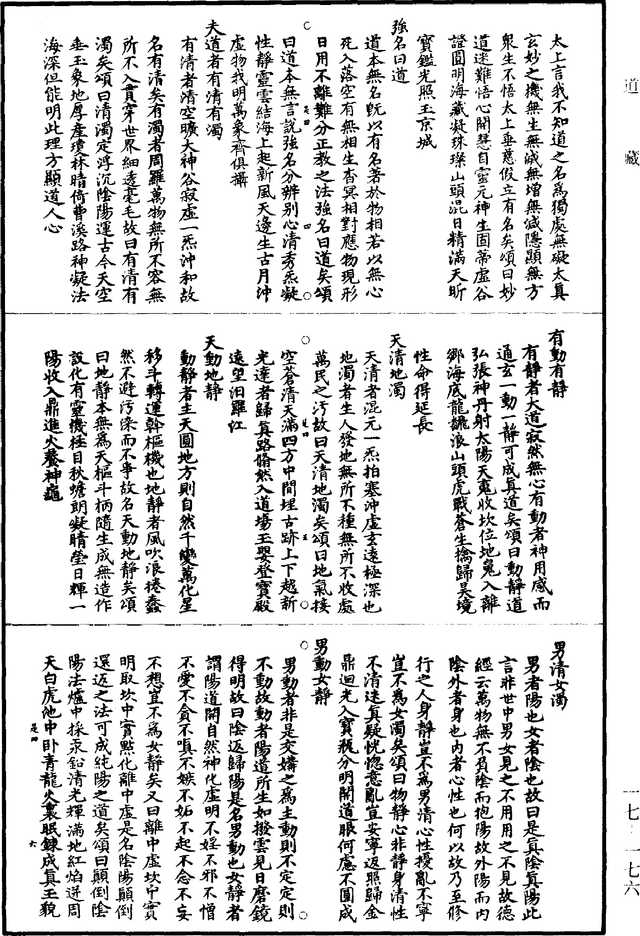 太上言我不知道之名為獨處無礙太真
玄妙之機無生無滅無增無減隱顯無方
衆生不悟太上垂慈假立有名矣頌曰妙
道迷難悟心開慧自靈元神生固蒂虛谷
證圓明海藏凝珠璨山頭混日精滿天昕
寶鑑光照玉京城
強名曰道
道本無名旣以有名著於物相若以無心
死入落空有無相生杳冥相對應物現形
日用不離難分正教之法強名曰道矣頌
曰道本無言說強名分辨别心清秀炁凝
性靜靈雲結海上起新風天邊生古月沖
虛物我明萬象齊俱攝
夫道者有清有濁
有清者清空曠大神谷寂虛一炁沖和故
名有清矣有濁者周羅萬物無所不容無
所不入貫穿世界細透毫毛故曰有清有
濁矣頌曰清濁定浮沉陰陽運古今天空
垂玉象地厚產瓊林晴倚曹溪路神凝法
海深但能明此理方顯道人心
有動有靜
有靜者大道寂然無心有動者神用感而
通玄一動一靜可成真道矣頌曰動靜道
弘張神丹射太陽天鬼收坎位地鬼入離
鄉海底龍翻浪山頭虎戰蒼生擒歸昊境
性命得延長
天清地濁
天清者混元一炁拍塞沖虛玄遠極深也
地濁者生人發地無所不種無所不收處
萬民之汚故曰天清地濁矣頌曰地氣接
空蒼清天滿四方中間埋古跡上下越新
光達者歸真路翛然入道場玉嬰登寶殿
遠望汨羅江
天動地靜
動靜者主天圓地方則自然千變萬化星
移斗轉運斡樞機也地靜者風吹浪捲蠢
然不避汚染而不爭故名天動地靜矣頌
曰地靜本無為天樞斗柄隨生成無造作
設化有靈機極目秋蟾朗凝睛瑩日輝一
陽收入鼎進火養神龜
男清女濁
男者陽也女者陰也故曰是真陰真陽此
言非世中男女見之不用用之不見故德
經云萬物無不負陰而抱陽故外陽而內
陰外者身也內者心性也何以故乃至修
行之人身靜豈不為男清心性擾亂不寧
豈不為女濁矣頌曰物靜心非靜身清性
不清迷真疑恍惚意亂豈安寧返照歸金
鼎迴光入寶瓶分明開道眼何慮不圓成
男動女靜
男動者非是交媾之為主動則不定定則
不動故動者陽道所生如撥雲見日磨鏡
得明故曰陰返歸陽是名男動也女靜者
謂陽道開自然神化虛明不婬不邪不憎
不愛不貪不嗔不嫉不妬不起不念不妄
不想豈不為女靜矣又曰離中虛坎中實
明取坎中實點化離中虛是名陰陽顛倒
還返之法可成純陽之道矣頌曰顛倒陰
陽法爐中採汞鉛清光輝滿地紅焰迸周
天白虎池中卧青龍火裏眠鍊成真玉貌
道藏
一七—一七六